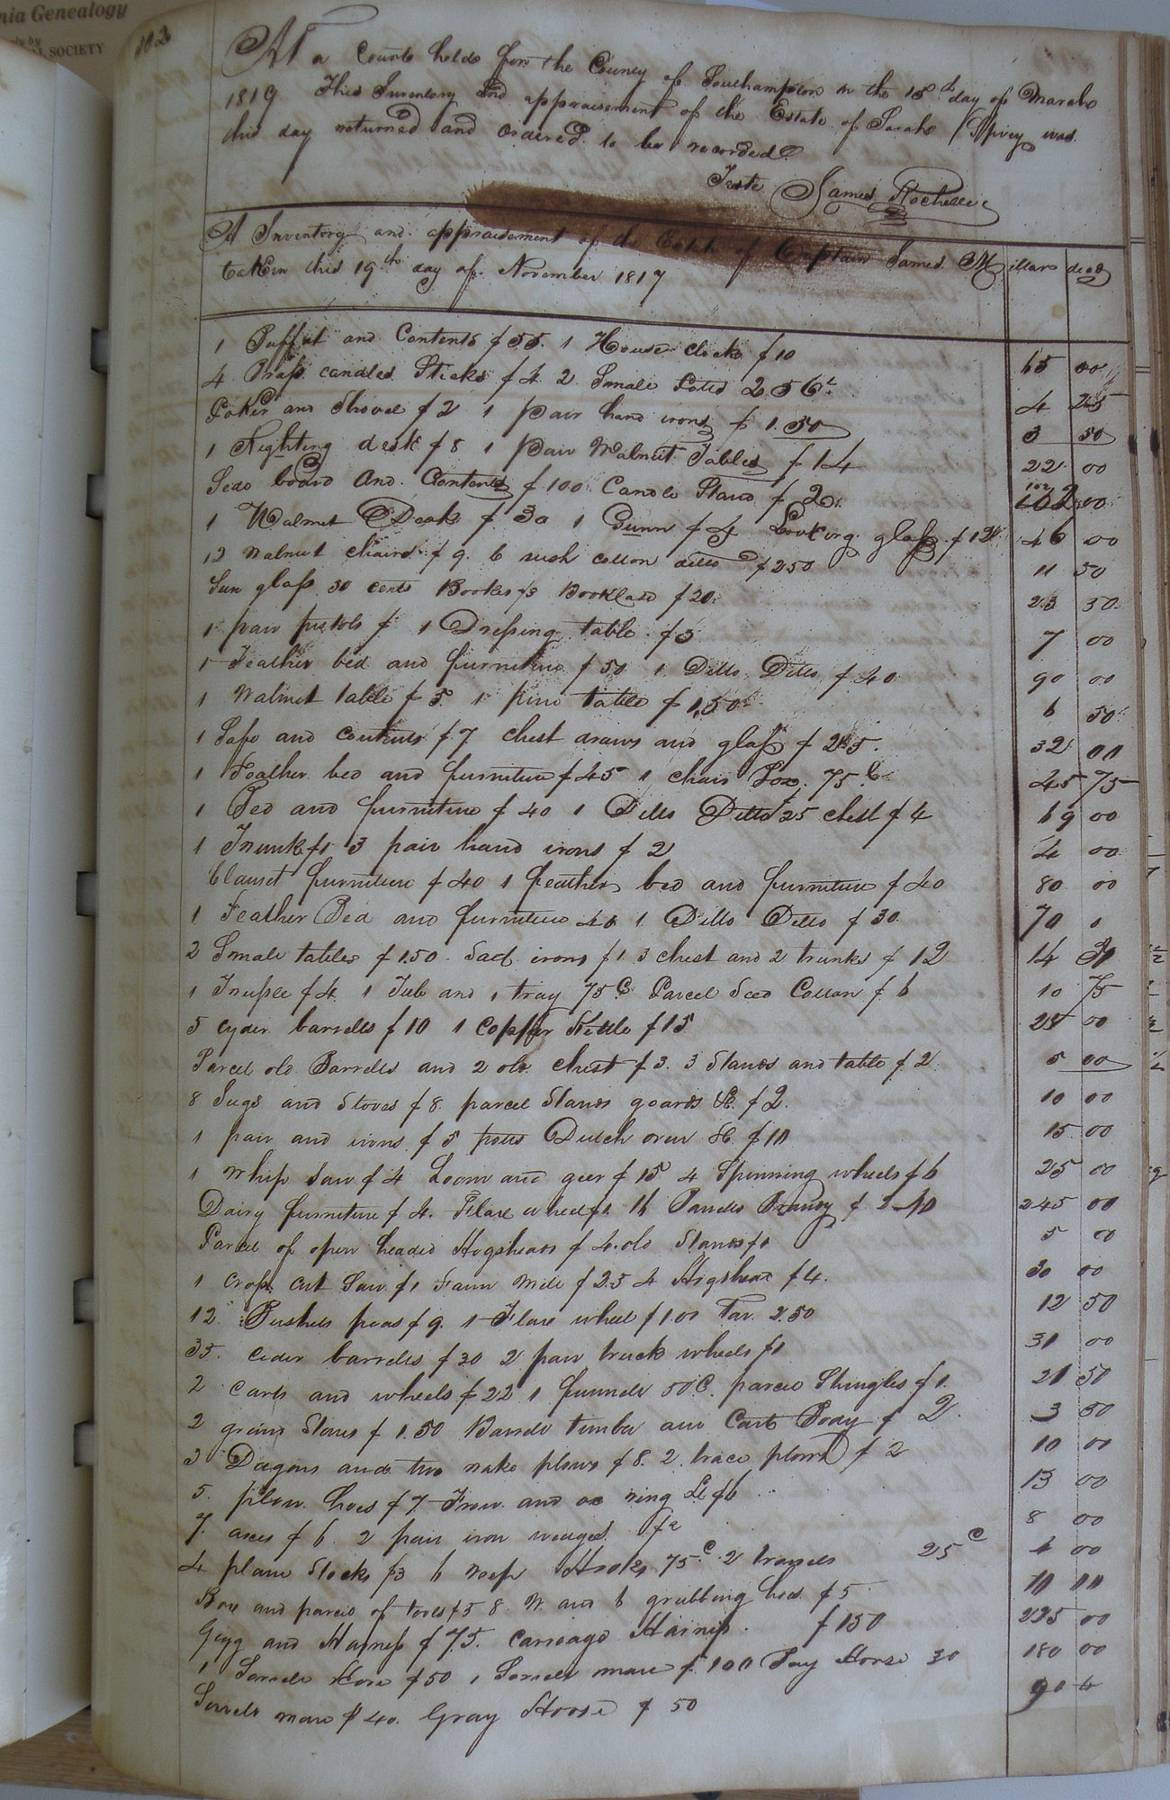 nia Genealogy
SOCIETY
At a Courte helde for the County of Southampton on the 15th day of March
1819 This Inventory and appraisement of the Estate of Sarah Spivey was
this day returned and ordered to be recorded
Teste James Rochelle
A Inventory and appraisement of the Estate of Captain James
taken this 19th day of November 1817
1 Buffit and Contents $55. 1 House clock $10 65 00
4 Brass candles Sticks $4 2 Smale 4 25
Poker and Shovel $2 1 pair hand irons $1.50 3 50
1 desk $8 1 pair Walnut Tables $14 22 00
board and Contents $100 Candle Stand $2 102 00
1 Walnut Desk $30 1 Gunn $4 Looking glass $12 46 00
12 walnut chairs $9. 6 rush ditto $250 11 50
Sun glass 30 cents Books $3 $20. 23 30
1 pair pistols $ 1 Dressing table $5 7 00
1 Feather bed and furniture $50 1 Ditto Ditto $40 90 00
1 Walnut table $5 1 pine table $1.50 6 50
1 Safe and contents $7 chest draws and glass $25. 32 00
1 Feather bed and furniture $45 1 chair 75 c 45 75
1 Bed and furniture $40 1 Ditto Ditto 25 chest $4 69 00
1 Trunk 3 pair hand irons $2 4 00
furniture $40 1 feather bed and furniture $40 80 00
1 Feather Bed and furniture 40 1 Ditto Ditto $30 70 0
2 Smale tables $1.50 Sad irons $1 3 chest and 2 trunks $12 14
1 $4 1 Tub and 1 tray 75 C Parcel Seed Cotton $6 10 75
5 cyder barrells $10 1 Copper Kettle $15 25 00
Parcel old Barrells and 2 old chest $3. 3 Stands and table $2 5 00
8 Jugs and $8. parcel Stands goards &c $2. 10 00
1 pair and irons $5 potts Dutch oven &c $10 15 00
1 Whip Saw $4 Loom and geer $15 4 Spinning wheels $6 25 00
Dairy furniture $4. Flax wheel 16 Barrells Brandy $ 245 00
Parcel of open headed Hogsheads $4. old Stands $1 5 00
1 cross cut Saw $1 Fann Mill $25 4 Hogshead $4. 30 00
12 Bushels peas $9. 1 Flax wheel $1.00 Tar 2.50 12 50
35. cider barrells $30 2 pair truck wheels $1 31 00
2 Carts and wheels $22 1 50 C. parcel Shingles $1. 21 50
2 grind Stones $1.50 Barrell timber and Cart Body $2. 3 50
3 and two plows $8. 2 trace plows $2 10 00
5. plow hoes $7 Frow and $6 13 00
7. axes $6 2 pair iron wedges $2 8 00
4 plane Stocks $3 6 Hooks 75 C 2 25 C 4 00
Box and parcel of tools $5 8. W. and 6 grubbing hoes $5 10 00
Gigg and Harness $75. carriage Harness $150 225 00
1 Sorrele Horse $50 1 Sorrele mare $100 Bay Horse 30 180 00
Sorrele mare $40. Gray Horse $50 90